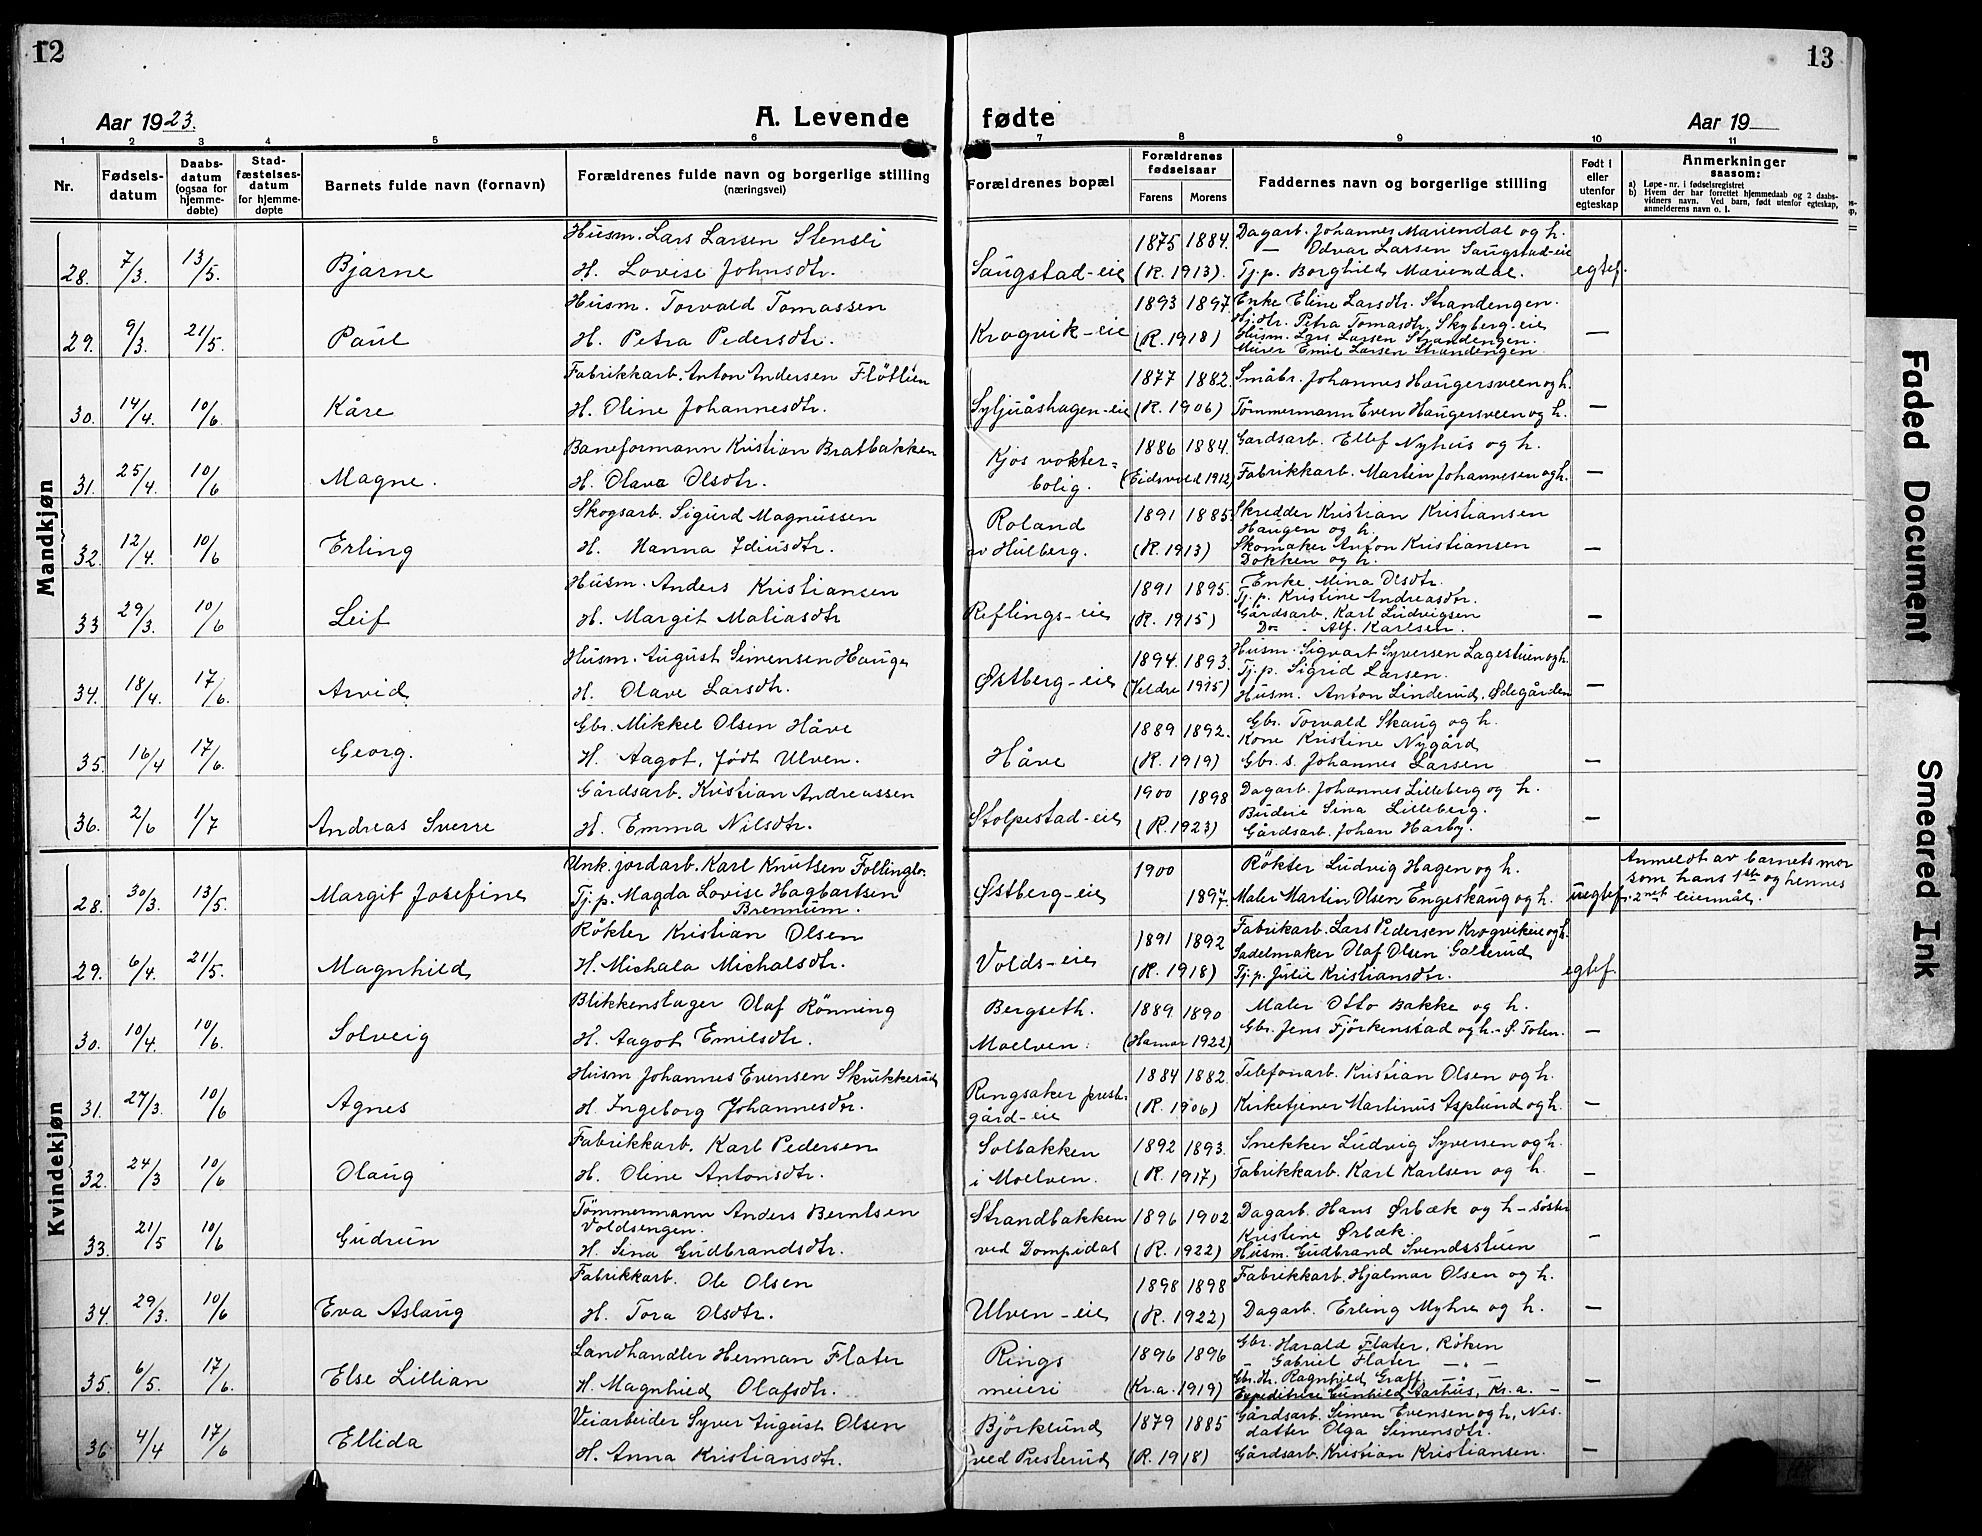 12
Aar 1923.
A. Levende
1 2 3 4 5 6
Nr.
Fødsels-datum
Daabs-datum (ogsaa for hjemme-døbte)
Stad-fæstelses-datum for hjemme-døpte
Barnets fulde navn (fornavn)
Forældrenes fulde navn og borgerlige stilling (næringsvei)
13
fødte
Aar 19
7 8 9 10 11
Forældrenes bopæl
Forældrenes fødselsaar
Farens Morens
Faddernes navn og borgerlige stilling
Født i eller utenfor egteskap
Anmerkninger saasom:
a) Løpe-nr. i fødselsregistret
b) Hvem der har forrettet hjemmedaab og 2 daabs-vidners navn. Ved barn, født utenfor egteskap, anmelderens navn o. l.
Mandkjøn
28. 7/3 13/5. Bjarne
Husm. Lars Larsen Stensli
H. Lovise Johnsdtr.
Saugstad-eie
1875 1884.
(R. 1913).
Dagarb. Johannes Mariendal og h.
— Odvar Larsen Saugstad-eie
Tj.p. Borghild Mariendal.
egtef.
29. 9/3 21/5. Paul
Husm. Torvald Tomassen
H. Petra Pedersdtr.
Krogvik-eie
1893 1897.
(R. 1918)
Enke Eline Larsdtr. Strandengen.
Hj.dtr. Petra Tomasdtr. Skyberg-eie
Husm. Lars Larsen Strandengen.
Murer Emil Larsen Strandengen.
—
30. 14/4. 10/6. Kåre
Fabrikkarb. Anton Andersen Fløtlien
H. Oline Johannesdtr.
Syljuåshagen-eie
1877 1882.
(R. 1906)
Småbr. Johannes Haugersveen og h.
Tømmermann Even Haugersveen og h.
—
31. 25/4. 10/6 Magne.
Baneformann Kristian Bratbakken
H. Olava Olsdtr.
Kjos vokter=
bolig.
1886 1884.
(Eidsvold 1912)
Gardsarb. Ellef Nyhus og h.
Fabrikkarb. Martin Johannesen og h.
—
32. 12/4. 10/6 Erling
Skogsarb. Sigurd Magnussen
H. Hanna Idiusdtr.
Roland
av Hulberg.
1891 1885.
(R. 1913)
Skredder Kristian Kristiansen
Haugen og h.
Skomaker Anton Kristiansen
Dokken og h.
—
33 29/3. 10/6 Leif
Husm. Anders Kristiansen
H. Margit Maliasdtr
Reflings-eie
1891 1895.
(R. 1915)
Enke Mina Olsdtr.
Tj.p. Kristine Andreasdtr.
Gårdsarb. Karl Ludvigsen
Do Alf. Karlsen.
—
34. 18/4. 17/6. Arvid.
Husm. August Simensen Hauge
H. Olave Larsdtr.
Østberg-eie
1894. 1893.
(Veldre 1915)
Husm. Sigvart Syversen Lagestuen og h.
Tj.p. Sigrid Larsen.
Husm. Anton Linderud, Ødegården
—
35. 16/4 17/6. Georg.
Gbr. Mikkel Olsen Håve
H. Aagot, født Ulven.
Håve
1889 1892.
(R. 1919)
Gbr. Torvald Skaug og h.
Kone Kristine Nygård
Gbr. s. Johannes Larsen
—
36. 2/6 1/7 Andreas Sverre
Gårdsarb. Kristian Andreassen
H. Emma Nilsdtr.
Stolpestad-eie
1900 1898
(R. 1923)
Dagarb. Johannes Lilleberg og h.
Budeie Sina Lilleberg.
Gårdsarb. Johan Harby.
—
Kvindekjøn
28. 30/3. 13/5. Margit Josefine
Unk. jordarb. Karl Knutsen Follinglo.
Tj.p. Magda Lovise Hagbartsen
Brennum.
Østberg-eie
1900
1897.
Røkter Ludvig Hagen og h.
Maler Martin Olsen Engeskaug og h.
uegtef.
Anmeldt av barnets mor
som hans 1ste og hennes
2net leiermål.
29. 6/4. 21/5. Magnhild
Røkter Kristian Olsen
H. Michala Michalsdtr.
Volds-eie
1891 1892
(R. 1918)
Fabrikarb. Lars Pedersen Krogvikeie og h.
Sadelmaker Olaf Olsen Galterud
Tj.p. Julie Kristiansdtr.
egtef.
30. 10/4. 10/6. Solveig
Blikkenslager Olaf Rønning
H. Aagot Emilsdtr.
Bergseth.
Moelven.
1889 1890
(Hamar 1922)
Maler Otto Bakke og h.
Gbr. Jens Fjørkenstad og h. Ø. Toten.
—
31. 27/3. 10/6 Agnes
Husm Johannes Evensen Skrukkerud
H. Ingeborg Johannesdtr.
Ringsaker prest-
gård-eie
1884 1882.
(R. 1906)
Telefonarb. Kristian Olsen og h.
Kirketjener Martinus Asplund og h.
—
32. 24/3 10/6 Olaug
Fabrikkarb. Karl Pedersen
H. Oline Antonsdtr.
Solbakken
i Moelven.
1892 1893.
(R. 1917)
Snekker Ludvig Syversen og h.
Fabrikkarb. Karl Karlsen og h.
—
33. 21/5 10/6 Gudrun
Tømmermann Anders Berntsen
Voldsengen.
H. Sina Gudbrandsdtr.
Strandbakken
ved Dompidal
1896 1902
(R. 1922)
Dagarb. Hans Ørbæk og h – søster
Kristine Ørbæk.
Husm. Gudbrand Svendsstuen
—
34. 29/3. 10/6 Eva Aslaug
Fabrikkarb. Ole Olsen
H. Tora Olsdtr.
Ulven-eie
1898 1898
(R. 1922)
Fabrikkarb. Hjalmar Olsen og h.
Dagarb. Erling Myhre og h.
—
35. 6/5. 17/6. Else Lillian
Landhandler Herman Flater
H. Magnhild Olafsdtr.
Rings
meieri
1896 1896
(Kr.a. 1919)
Gbr. Harald Flater, Røken
- Gabriel Flater — " —
Gbr. dtr. Ragnhild Graff — " —
Expeditrise Gunhild Aarhus, Kr.a. —
—
36. 4/4 17/6 Ellida
Veiarbeider Syver August Olsen
H. Anna Kristiansdtr.
Bjørklund
ved Presterud
1879 1885
(R. 1918)
Gårdsarb. Simen Evensen og h, Nes.
datter Olga Simensdtr.
Gårdsarb. Kristian Kristiansen.
—
Faded Document
Smeared Ink